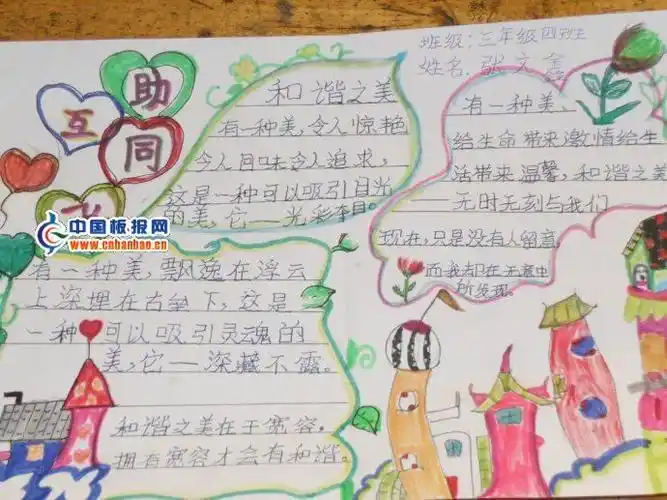 班级:三年级四班
姓名:张文鑫
互助
同
飞
和谐之美
有一种美,令人惊艳
令人回味令人追求,
这是一种可以吸引目光
的美,它一光彩夺目。
有一种美、
给生命带来激情给生
活带来温馨,和谐之美
——无时无刻与我们
现在,只是没有人留意
而我却在无意中
所发现。
中国板报网
www.cnhanbao.cn
有一种美,飘逸在浮云
上深埋在古垒下,这是
一种可以吸引灵魂的
美,它一深藏不露。
和谐之美在于宽容。
拥有宽容才会有和谐。